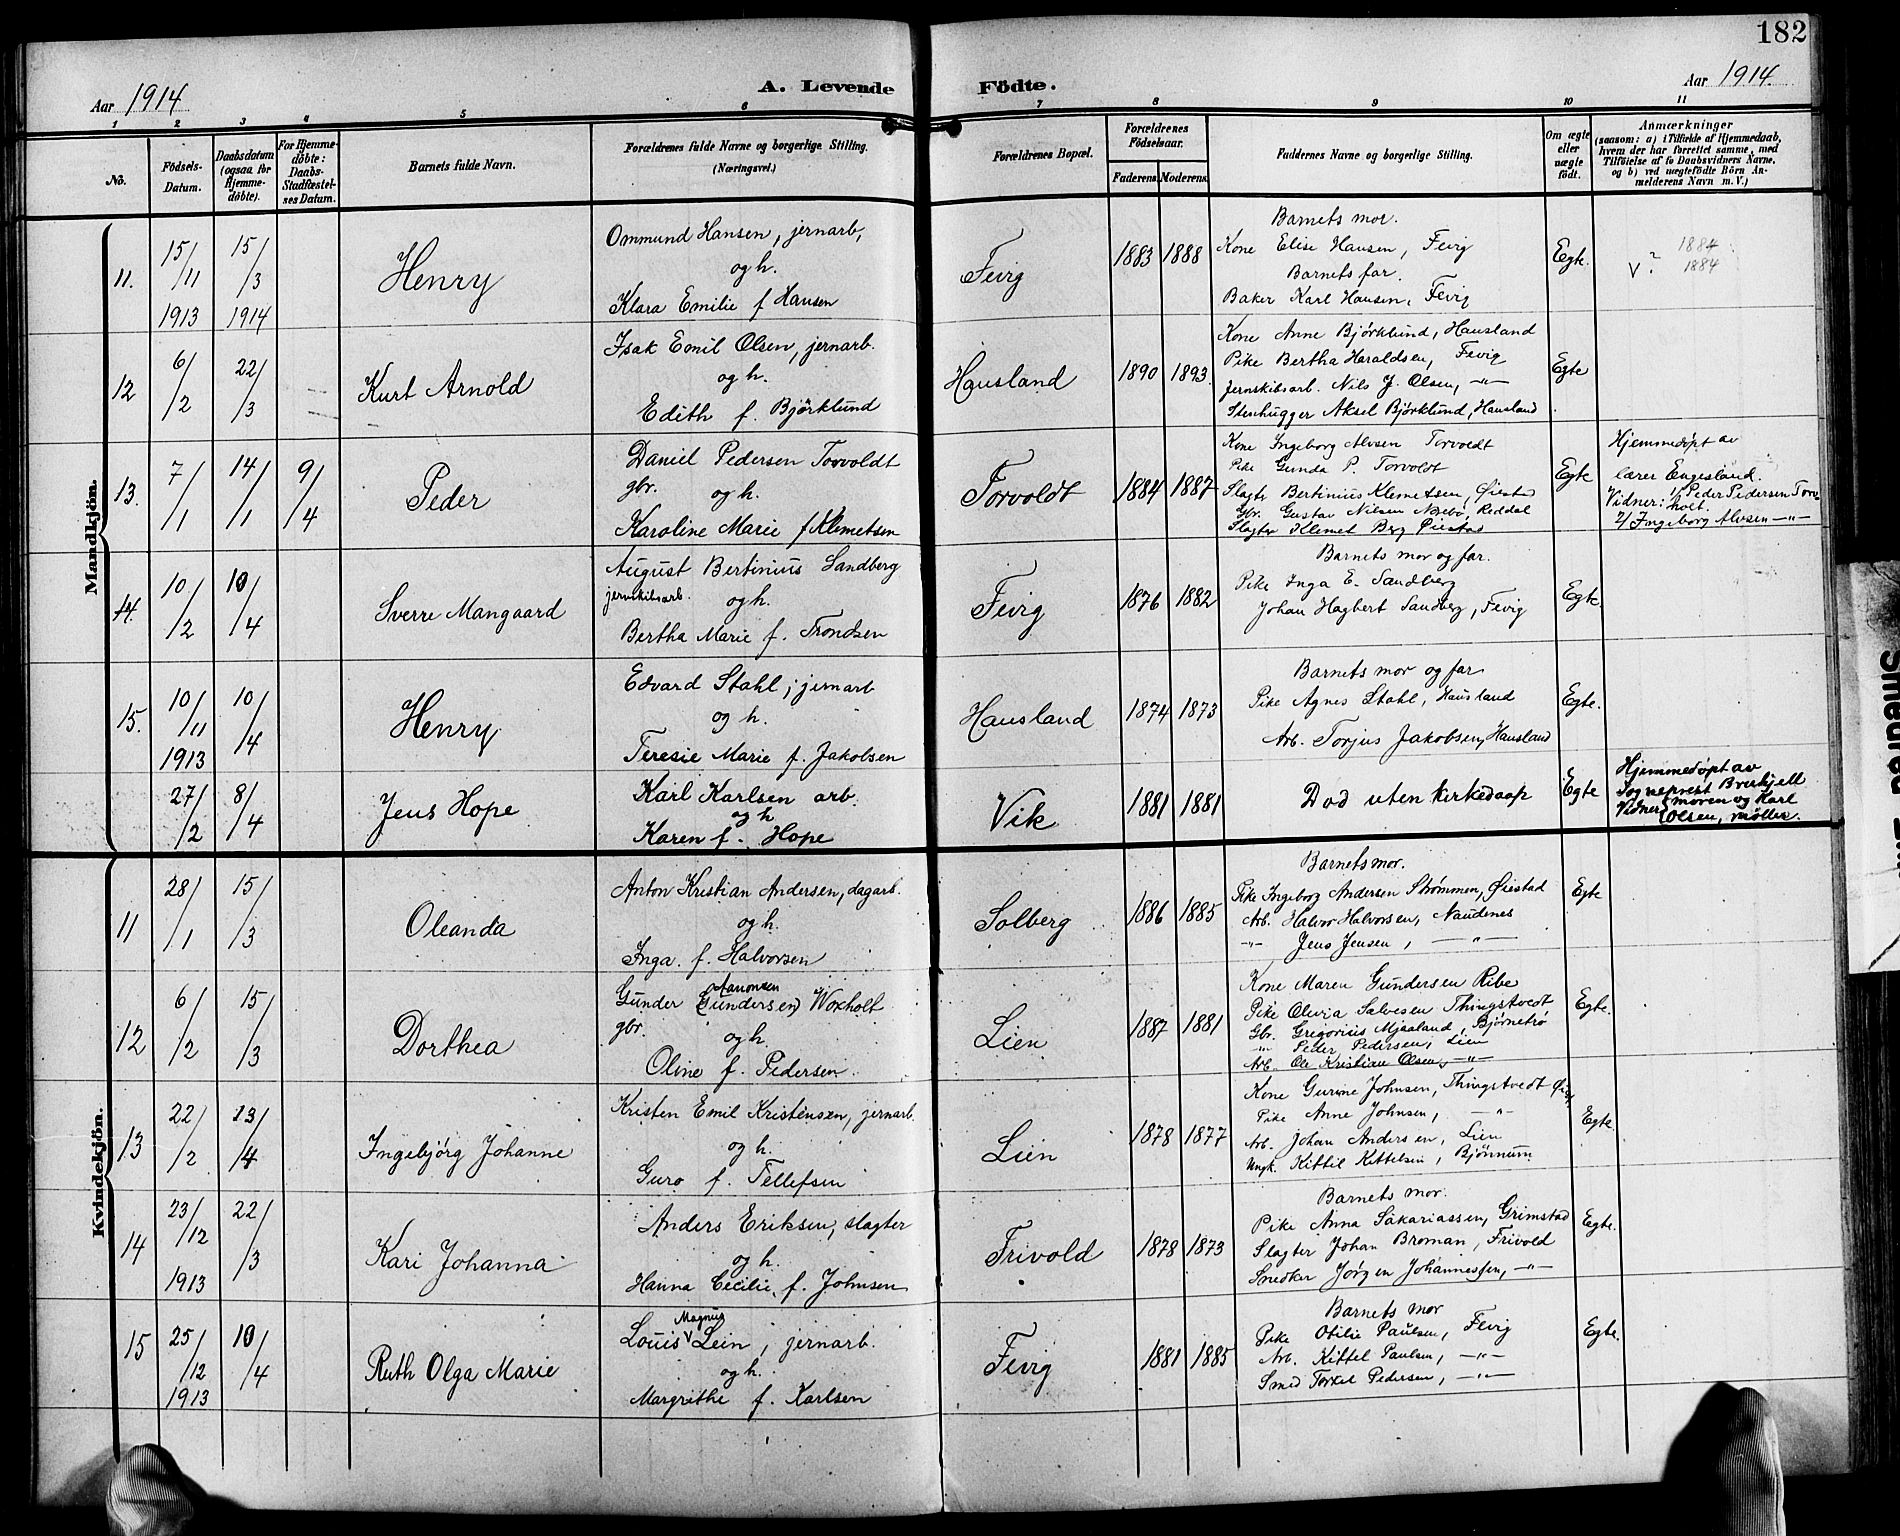 182
Aar 1914
A. Levende Födte.
Aar 1914.
1 2 3 4 5 6 7 8 9 10 11
No.
Födsels-Datum.
Daabsdatum (ogsaa for Hjemme-döbte).
For Hjemme-döbte: Daabs-Stadfæstel-ses Datum.
Barnets fulde Navn.
Forældrenes fulde Navne og borgerlige Stilling. (Næringsvei.)
Forældrenes Bopæl.
Forældrenes Födselsaar.
Faderens. Moderens.
Faddernes Navne og borgerlige Stilling.
Om ægte eller uægte födt.
Anmærkninger
(saasom: a) i Tilfælde af Hjemmedaab,
hvem der har forrettet samme, med
Tilföielse af to Daabsvidners Navne,
og b) ved uægtefödte Börn An-
melderens Navn m. V.)
Mandkjön.
11. 15/11 1913 15/3 1914 Henry
Ommund Hansen, jernarb,
og h.
Klara Emilie f Hansen
Fevig 1883 1888
Barnets mor.
Kone Elise Hansen, Fevig
Barnets far.
Baker Karl Hansen, Fevig
Egte.
1884
v? 1884
12 6/2 22/3 Kurt Arnold
Isak Emil Olsen, jernarb.
og h.
Edith f. Björklund
Hausland 1890 1893.
Kone Anne Bjørklund, Hausland
Pike Bertha Haraldsen, Fevig
Jernskibsarb. Nils J. Olsen, -"-
Stenhugger Aksel Bjørklund, Hausland
Egte
13. 7/1 14/1 9/4 Peder
Daniel Pedersen Torvoldt
gbr. og h.
Karoline Marie f Klemetsen
Torvoldt 1884 1887
Kone Ingeborg Alvsen Torvoldt
Pike Gunda P. Torvoldt
Slagter Bertinius Klemetsen, Øiestad
Gbr. Gustav Nilsen Reddal
Slagter Klemet Berg Øiestad
Egte
Hjemmedøpt av
lærer Engesland.
Vidner: 1/ Peder Pedersen Torv
holt.
2/ Ingeborg Alvsen -"-
14. 10/2 10/4 Sverre Mangaard
August Bertinius Sandberg
jernskibsarb. og h.
Bertha Marie f. Trondsen
Fevig 1876 1882
Barnets mor og far.
Pike Inga E. Sandberg
Johan Hagbert Sandberg, Fevig
Egte.
15. 10/11 1913 10/4 Henry
Edvard Stahl, jernarb
og h.
Teresie Marie f. Jakobsen
Hausland 1874 1873
Barnets mor og far
Pike Agnes Stahl, Hausland
Arb. Torjus Jakobsen, Hausland
Egte.
27/2 8/4 Jens Hope
Karl Karlsen arb.
og h
Karen f. Hope
Vik 1881 1881
Død uten kirkedaap
Egte
Hjemmedøpt av
Sogneprest
Vidner moren og Karl
Olsen, møller.
Kvindekjön.
11 28/1 15/3 Oleanda
Anton Kristian Andersen, dagarb.
og h.
Inga. f. Halvorsen
Solberg 1886 1885
Barnets mor.
Pike Ingeborg Andersen Strømmen, Øiestad
Arb. Halvor Halvorsen, Naudenes
-"- Jens Jensen, -"-
Egte
12 6/2 15/3 Dorthea
Aanonsen
Gunder (Gundersen) Woxholt
gbr. og h.
Oline f. Pedersen
Lien 1887 1881
Kone Maren Gundersen Ribe
Pike Olivia Salvesen Thingstvedt
Gbr. Gregorius Mjaaland, Bjørnetrø
" Peder Pedersen, Lien
Arb. Ole Kristian Olsen, -"-
Egte.
13 22/2 13/4 Ingebjörg Johanne
Kristen Emil Kristensen, jernarb.
og h.
Guro f. Tellefsen
Lien 1878 1877
Kone Gurine Johnsen, Thingstvedt
Pike Anne Johnsen, -"-
Arb. Johan Andersen, Lien
Ungk. Kittil Kittelsen, Bjønnum
Egte.
14 23/12 1913 22/3 Kari Johanna
Anders Eriksen, slagter
og h.
Hanna Cecilie, f. Johnsen
Frivold 1878 1873
Barnets mor.
Pike Anna Sakariassen, Grimstad
Slagter Johan Broman, Frivold
Snedker Jørgen Johannessen, -"-
Egte.
15 25/12 1913 10/4 Ruth Olga Marie
Magnus
Louis v Lein, jernarb.
og h.
Margrethe f. Karlsen
Fevig 1881 1885
Barnets mor
Pike Otilie Paulsen, Fevig
Arb. Kittel Paulsen, -"-
Smed Torkel Pedersen, -"-
Egte.